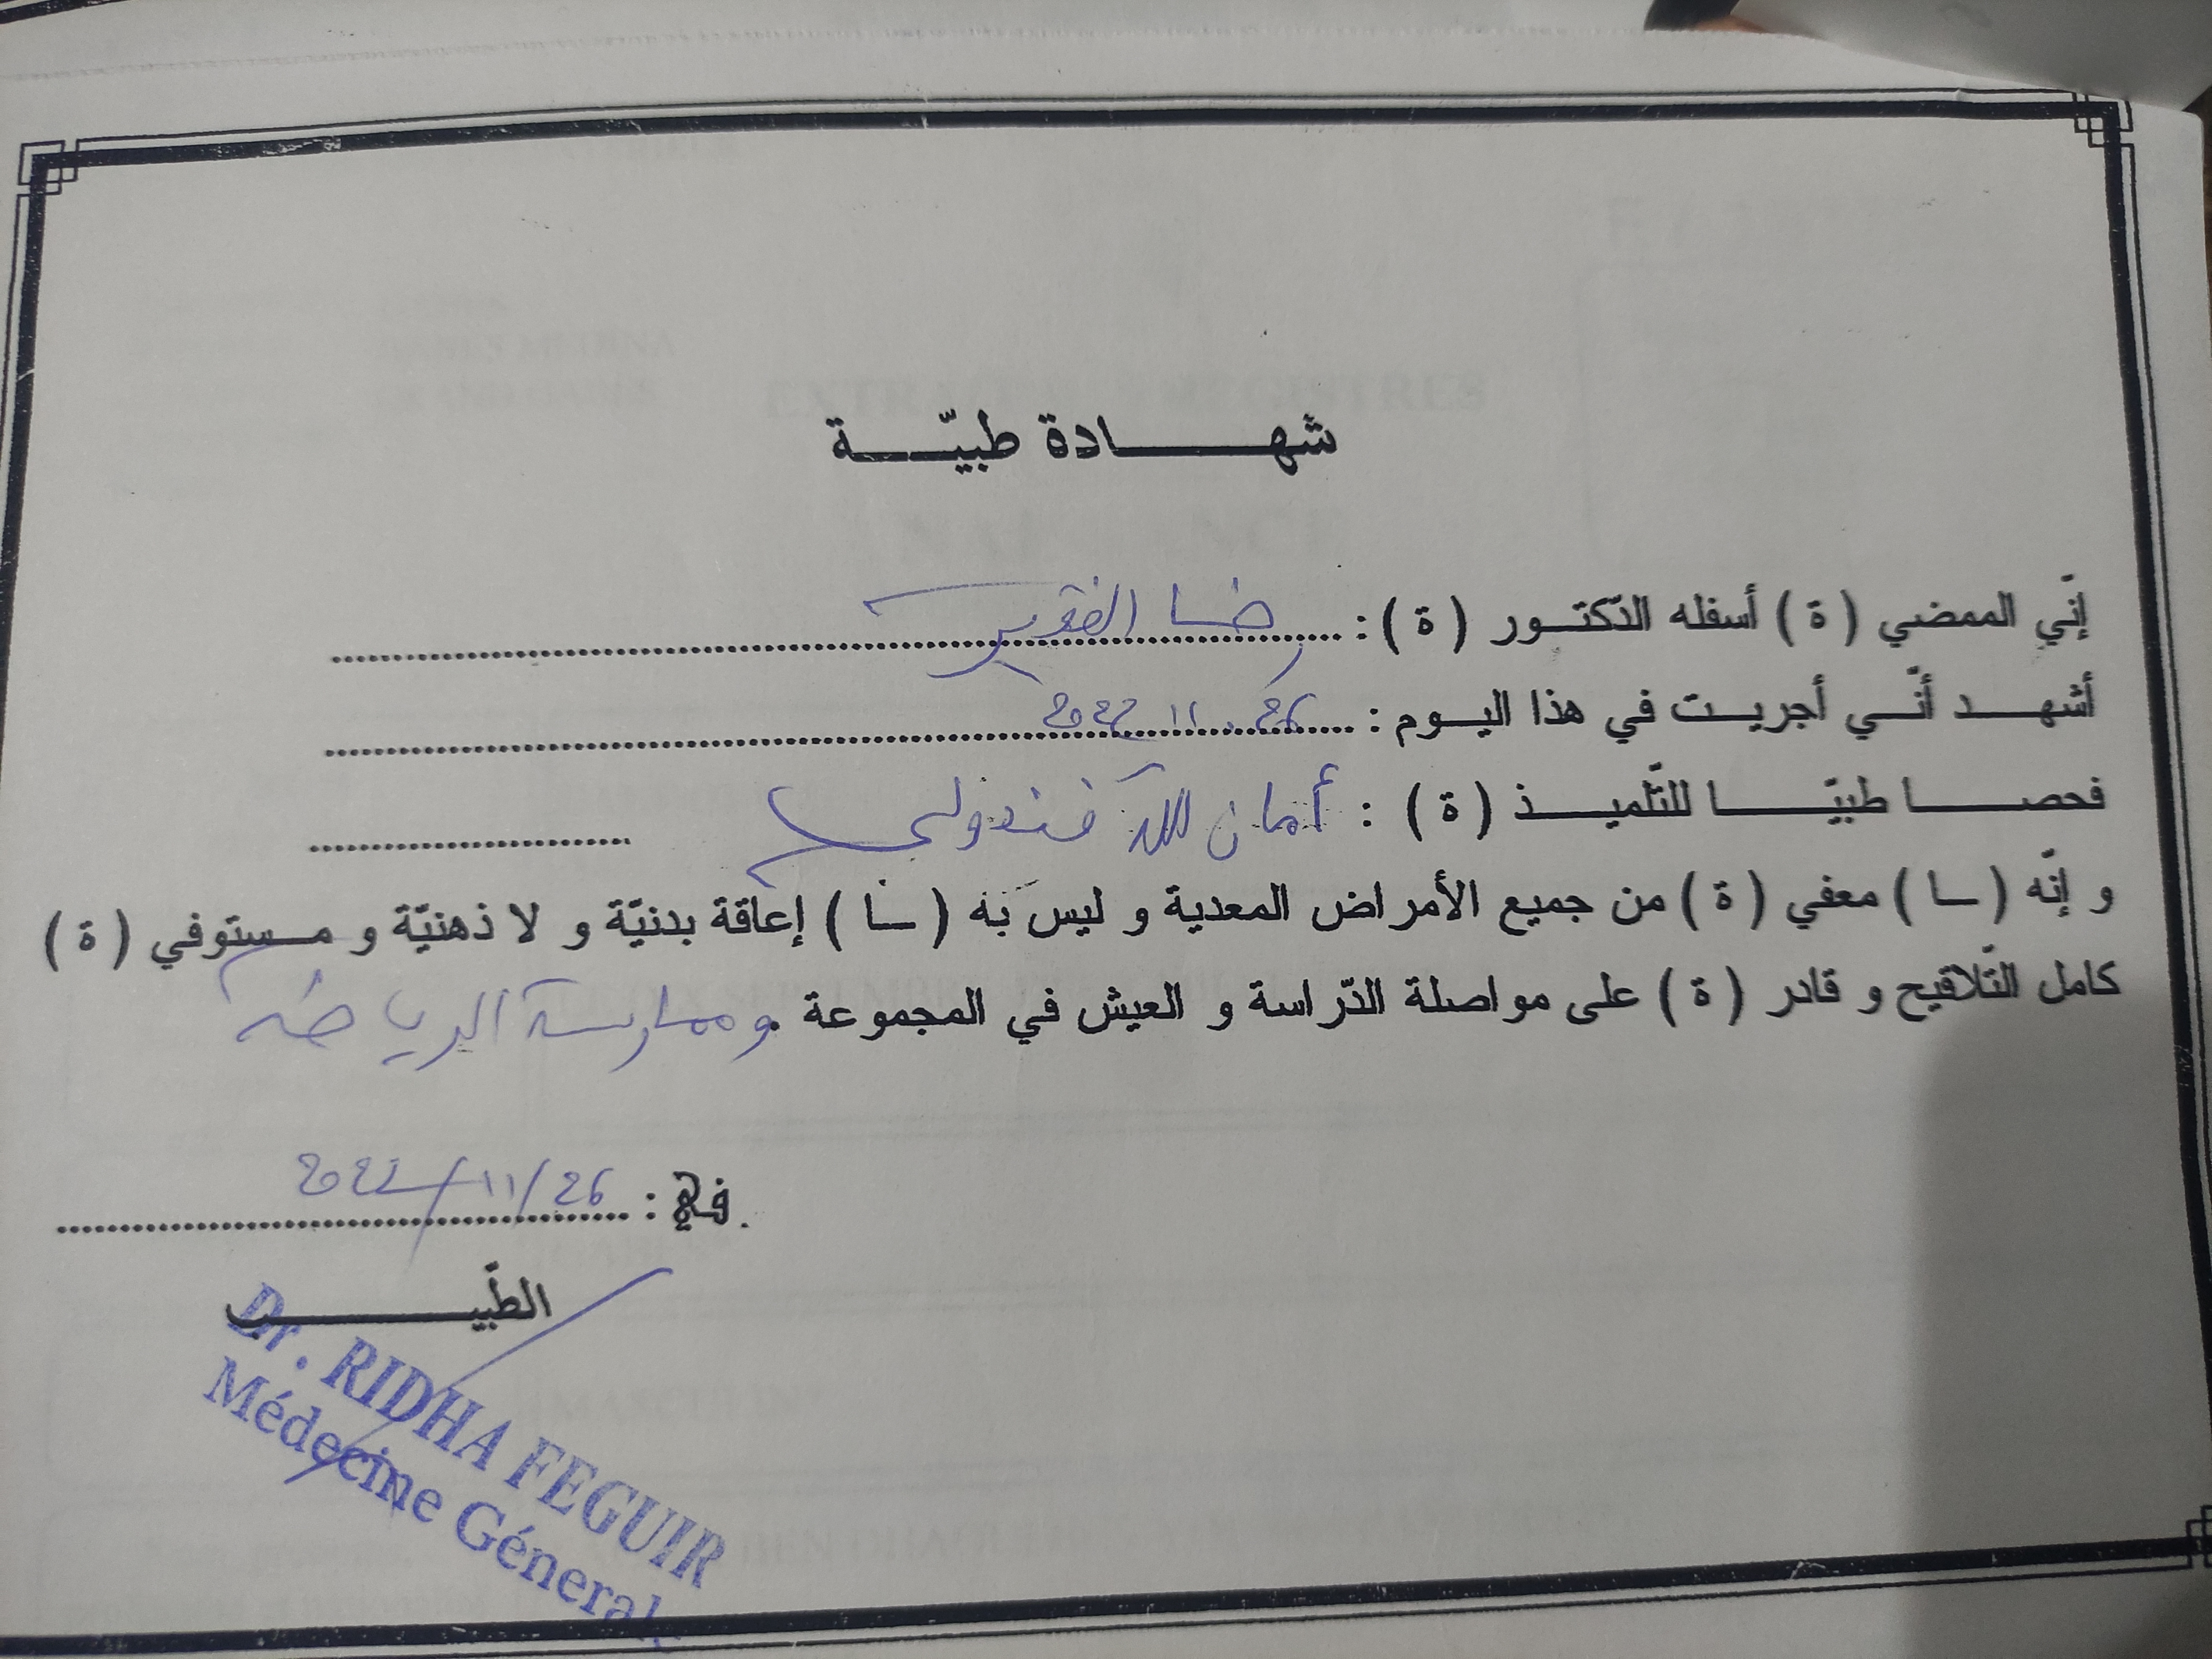 شهادة طبيّة
إنّي الممضي ( ة ) أسفله الدّكتور ( ة ) : رضا الفقير
أشهد أنّي أجريت في هذا اليوم : 26 11 2022
فحصا طبيّا للتّلميذ ( ة ) : أمان الله
و إنّه ( ـا ) معفي ( ة ) من جميع الأمراض المعدية و ليس به ( ـا ) إعاقة بدنيّة و لا ذهنيّة و مستوفي ( ة )
كامل التّلاقيح و قادر ( ة ) على مواصلة الدّراسة و العيش في المجموعة . وممارسة الرياضة
في : 26/11/2022
الطّبيب
Dr. RIDHA FEGUIR
Médecine Géneral